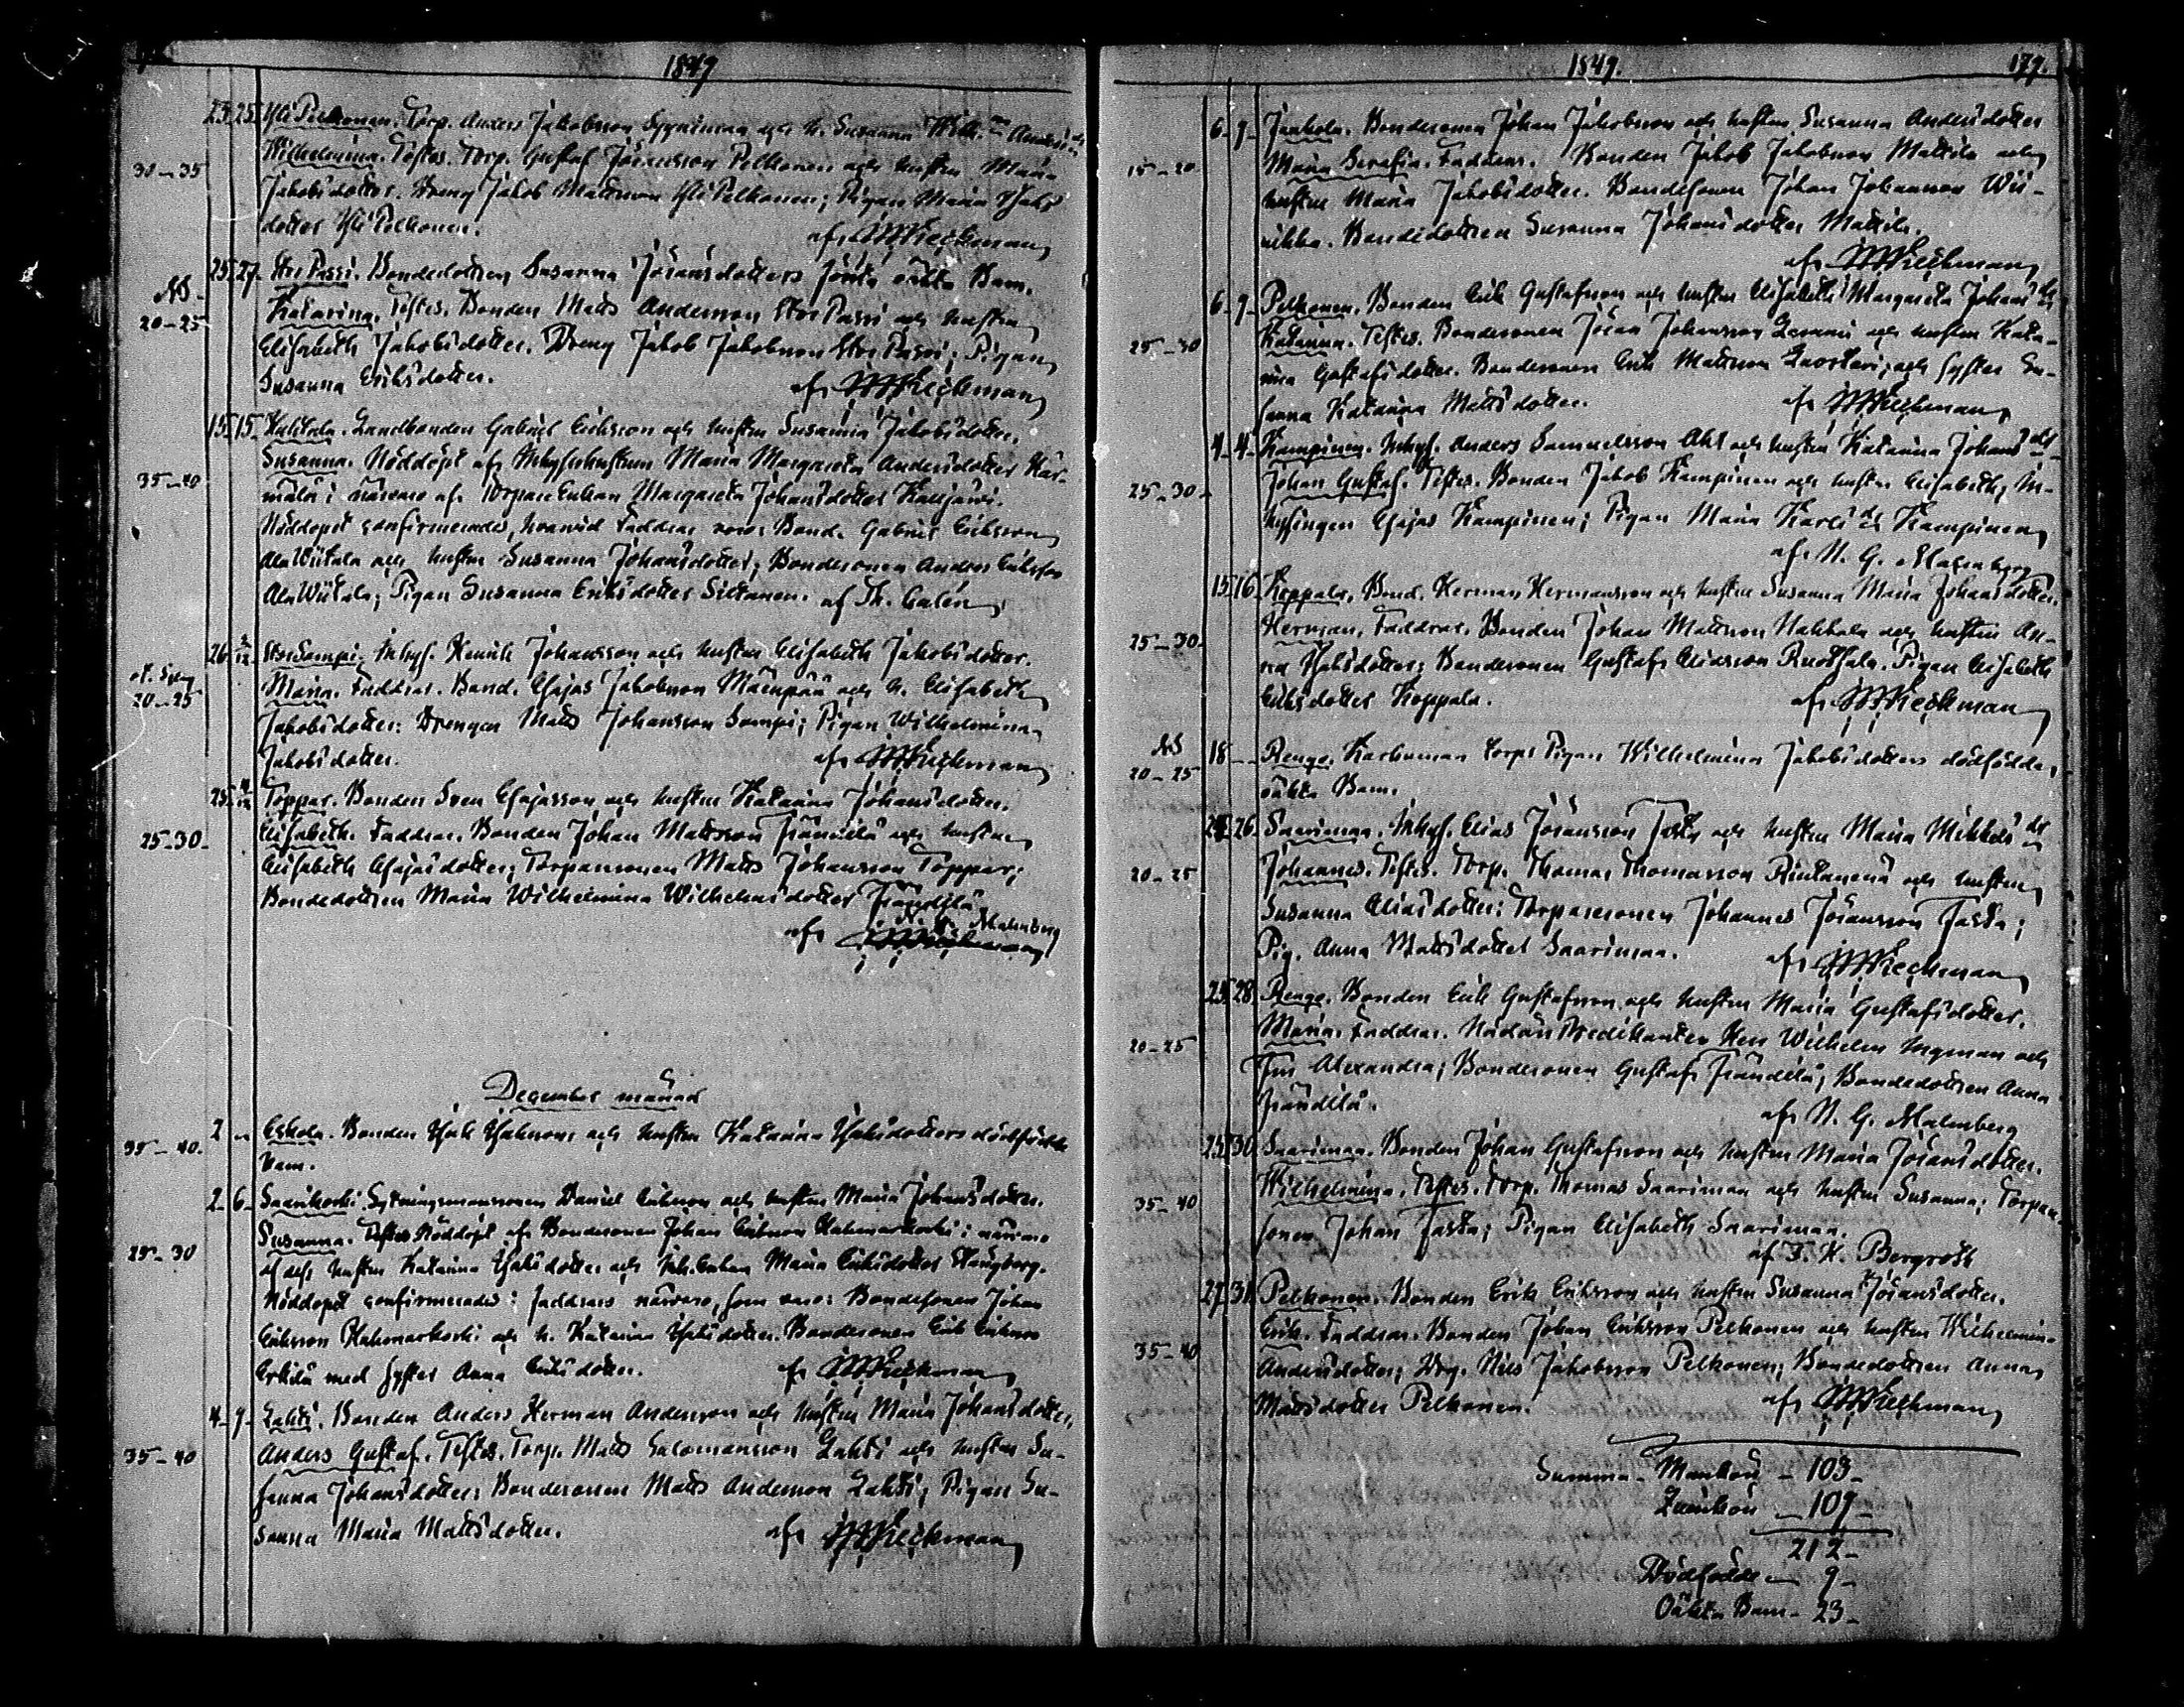 1849
23. 25. Yli Pelkonen. Torp. Anders Jakobsson och h. Susanna Wilh.na Anders ds
30-35 Wilhelmina. Testes. Torp. Gustaf Jöransson Pelkonen och hustru Maria
Jakobsdotter. Dreng Jakob Mattsson Yli Pelkonen; Pigan Maria Isaks
dotter Yli Pelkonen.
af
25. 27. Stor Passi. Bondedottren Susanna Jöransdotters första oäkta Barn.
20-25 Katarina. Testes. Bonden Matts Andersson Stor Passi och hustru
Elisabeth Jakobsdotter. Dreng Jakob Jakobsson Stor Passi; Pigan
Susanna Eriksdotter.
af
15. 15. Landbonden Gabriel Eriksson och hustru Susanna Jakobsdotter.
35-40 Susanna. Nöddöpt af Inhyseshustrun Maria Margareta Andersdotter
i närvaro af Torpare Enkan Margareta Johansdotter
Nöddopet confirmerades, hvarvid Faddrar voro: Bond. Gabriel Eriksson
Ala Wiitala och hustru Susanna Johansdotter; Bondesonen Anders Eriksson
Ala Wiitala; Pigan Susanna Eriksdotter Siltanen. af Th. Calén
26. 2/12. Stor Sampi. Inhys. Henrik Johansson och hustru Elisabeth Jakobsdotter.
20-25 Maria. Faddrar. Bond. Esajas Jakobsson Mäenpää och h. Elisabeth
Jakobsdotter; Drengen Matts Johansson Sampi; Pigan Wilhelmina
Jakobsdotter. af
25. Töppar. Bonden Sven Esajasson och hustru Katarina Johansdotter.
25-30 Elisabeth. Faddrar. Bonden Johan Mattsson Frändilä och hustru
Elisabeth Esajasdotter; Torparesonen Matts Johansson Töppar;
Bondedottren Maria Wilhelmina Wilhelmsdotter Frändilä
af N. G. Malmberg
December månad
2 Eskola. Bonden Isak Isaksson och hustru Katarina Isaksdotters dödfödde
35-40. Barn.
2. 6. Saarikoski. Sytningsmanssonen Daniel Eriksson och hustru Maria Johansdotter.
Susanna. Testes Nöddöpt af Bondesonen Johan Eriksson i närvaro
25-30 af dess hustru Katarina Isaksdotter och Inh. Enkan Maria Eriksdotter
Nöddopet confirmerades i faddrars närvaro, som voro: Bondesonen Johan
Eriksson och h. Katarina Isaksdotter. Bondesonen Erik Eriksson
Erkilä med syster Anna Eriksdotter. af
4. 9. Lahti. Bonden Anders Herman Andersson och hustru Maria Johansdotter,
35-40 Anders Gustaf. Testes. Torp. Matts Salomonsson Lahti och hustru Su-
sanna Johansdotter; Bondesonen Matts Andersson Lahti; Pigan Su-
sanna Maria Mattsdotter. af
1849. 179.
6. 9. Jaakola. Bondesonen Johan Jakobsson och hustru Susanna Andersdotter
15-20 Maria Serafia. Faddrar. Bonden Jakob Jakobsson Mattila och
hustru Maria Jakobsdotter. Bondesonen Johan Johansson Wii-
nikka. Bondedottren Susanna Johansdotter Mattila.
af
6. 9. Pelkonen. Bonden Erik Gustafsson och hustru Elisabeth Margareta Johans ds
25-30 Katarina. Testes. Bondesonen Jöran Johansson och hustru Kata-
rina Gustafsdotter. Bondesonen Erik Mattsson och syster Su-
sanna Katarina Mattsdotter. af
4. 4. Kampinen. Inhys. Anders Samuelsson Ahl och hustru Katarina Johans ds
25-30 Johan Gustaf. Testes. Bonden Jakob Kampinen och hustru Elisabeth; In-
hysingen Esajas Kampinen; Pigan Maria Karls ds Kampinen
af N. G. Malmberg
15. 16. Koppala. Bond. Herman Hermansson och hustru Susanna Maria Johansdotter.
25-30 Herman. Faddrar. Bonden Johan Mattsson Hakkala och hustru An-
na Isaksdotter; Bondesonen Gustaf Eliasson Ruotsala. Pigan Elisabeth
Eriksdotter Koppala. af
18 Renge. Karhumaa Torps Pigan Wilhelmina Jakobsdotters dödfödda,
20-25 oäkta Barn.
26. Saarimaa. Inhys. Elias Jöransson och hustru Maria Mikkels ds
20-25 Johannes. Testes. Torp. Thomas Thomasson Rintanen och hustru
Susanna Eliasdotter; Torparesonen Johannes Jöransson
Pig. Anna Mattsdotter Saarimaa. af
23. 28. Renge. Bonden Erik Gustafsson och hustru Maria Gustafsdotter.
20-25 Maria. Faddrar. Nådårs Predikanten Herr Wilhelm Ingman och
Fru Alexandra; Bondesonen Gustaf Frändilä; Bondedottren Anna
Frändilä. af N. G. Malmberg
25. 30. Saarimaa. Bonden Johan Gustafsson och hustru Maria Jöransdotter.
35-40 Wilhelmina. Testes. Torp. Thomas Saarimaa och hustru Susanna; Torpare-
sonen Johan Pigan Elisabeth Saarimaa.
af F. H. Bergroth
27. 31. Pelkonen. Bonden Erik Eriksson och hustru Susanna Jöransdotter.
35-40 Erik. Faddrar. Bonden Johan Eriksson Pelkonen och hustru Wilhelmina
Andersdotter; Drg. Nils Jakobsson Pelkonen; Bondedottren Anna
Mattsdotter Pelkonen. af
Summa. Mankön - 103-
Qvinkön - 109-
212-
Dödfödde - 9-
Oäkta Barn - 23-